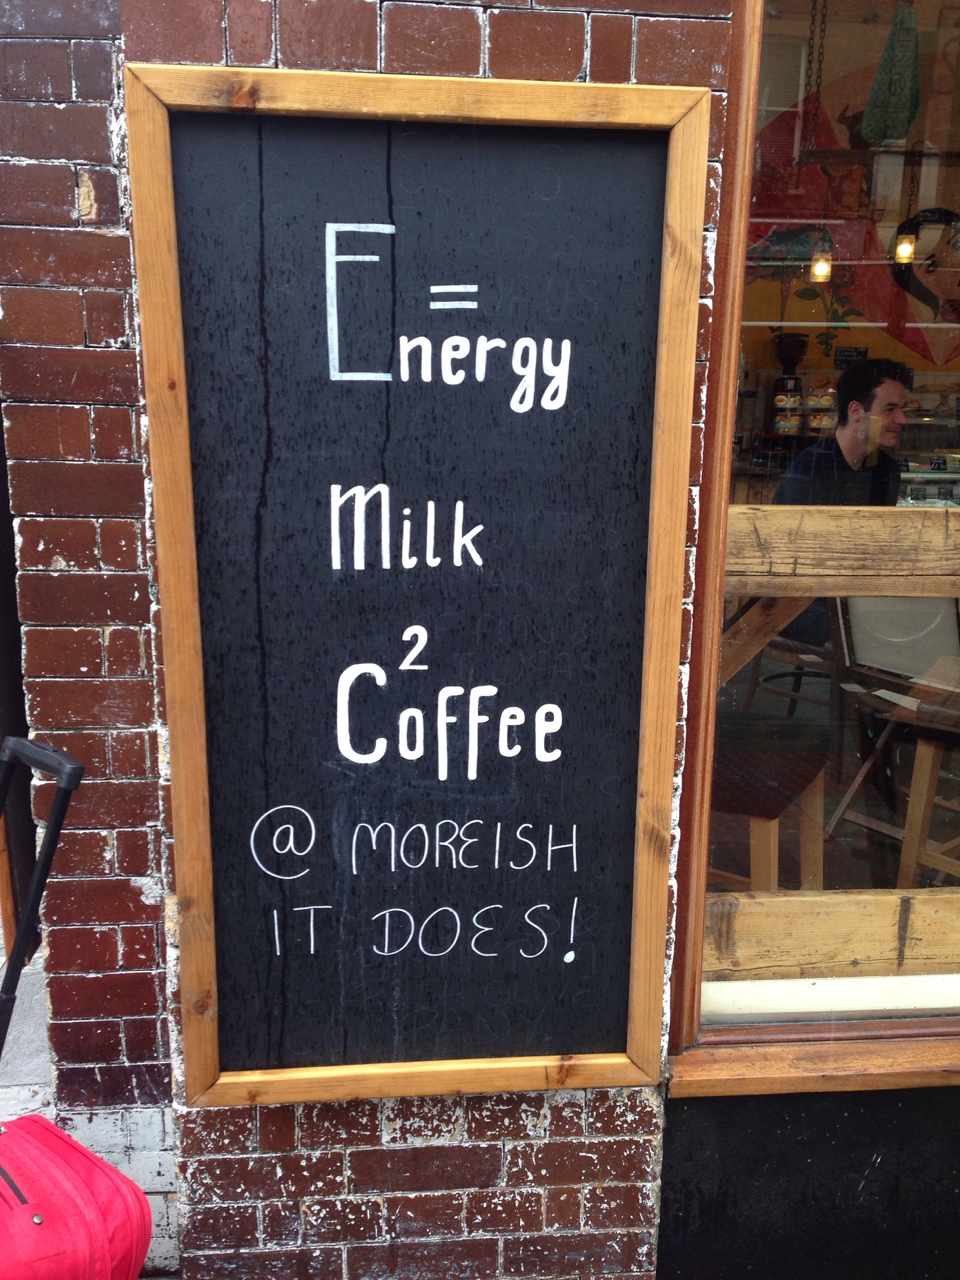 Energy =
Milk
Coffee ²
@ MOREISH
IT DOES!